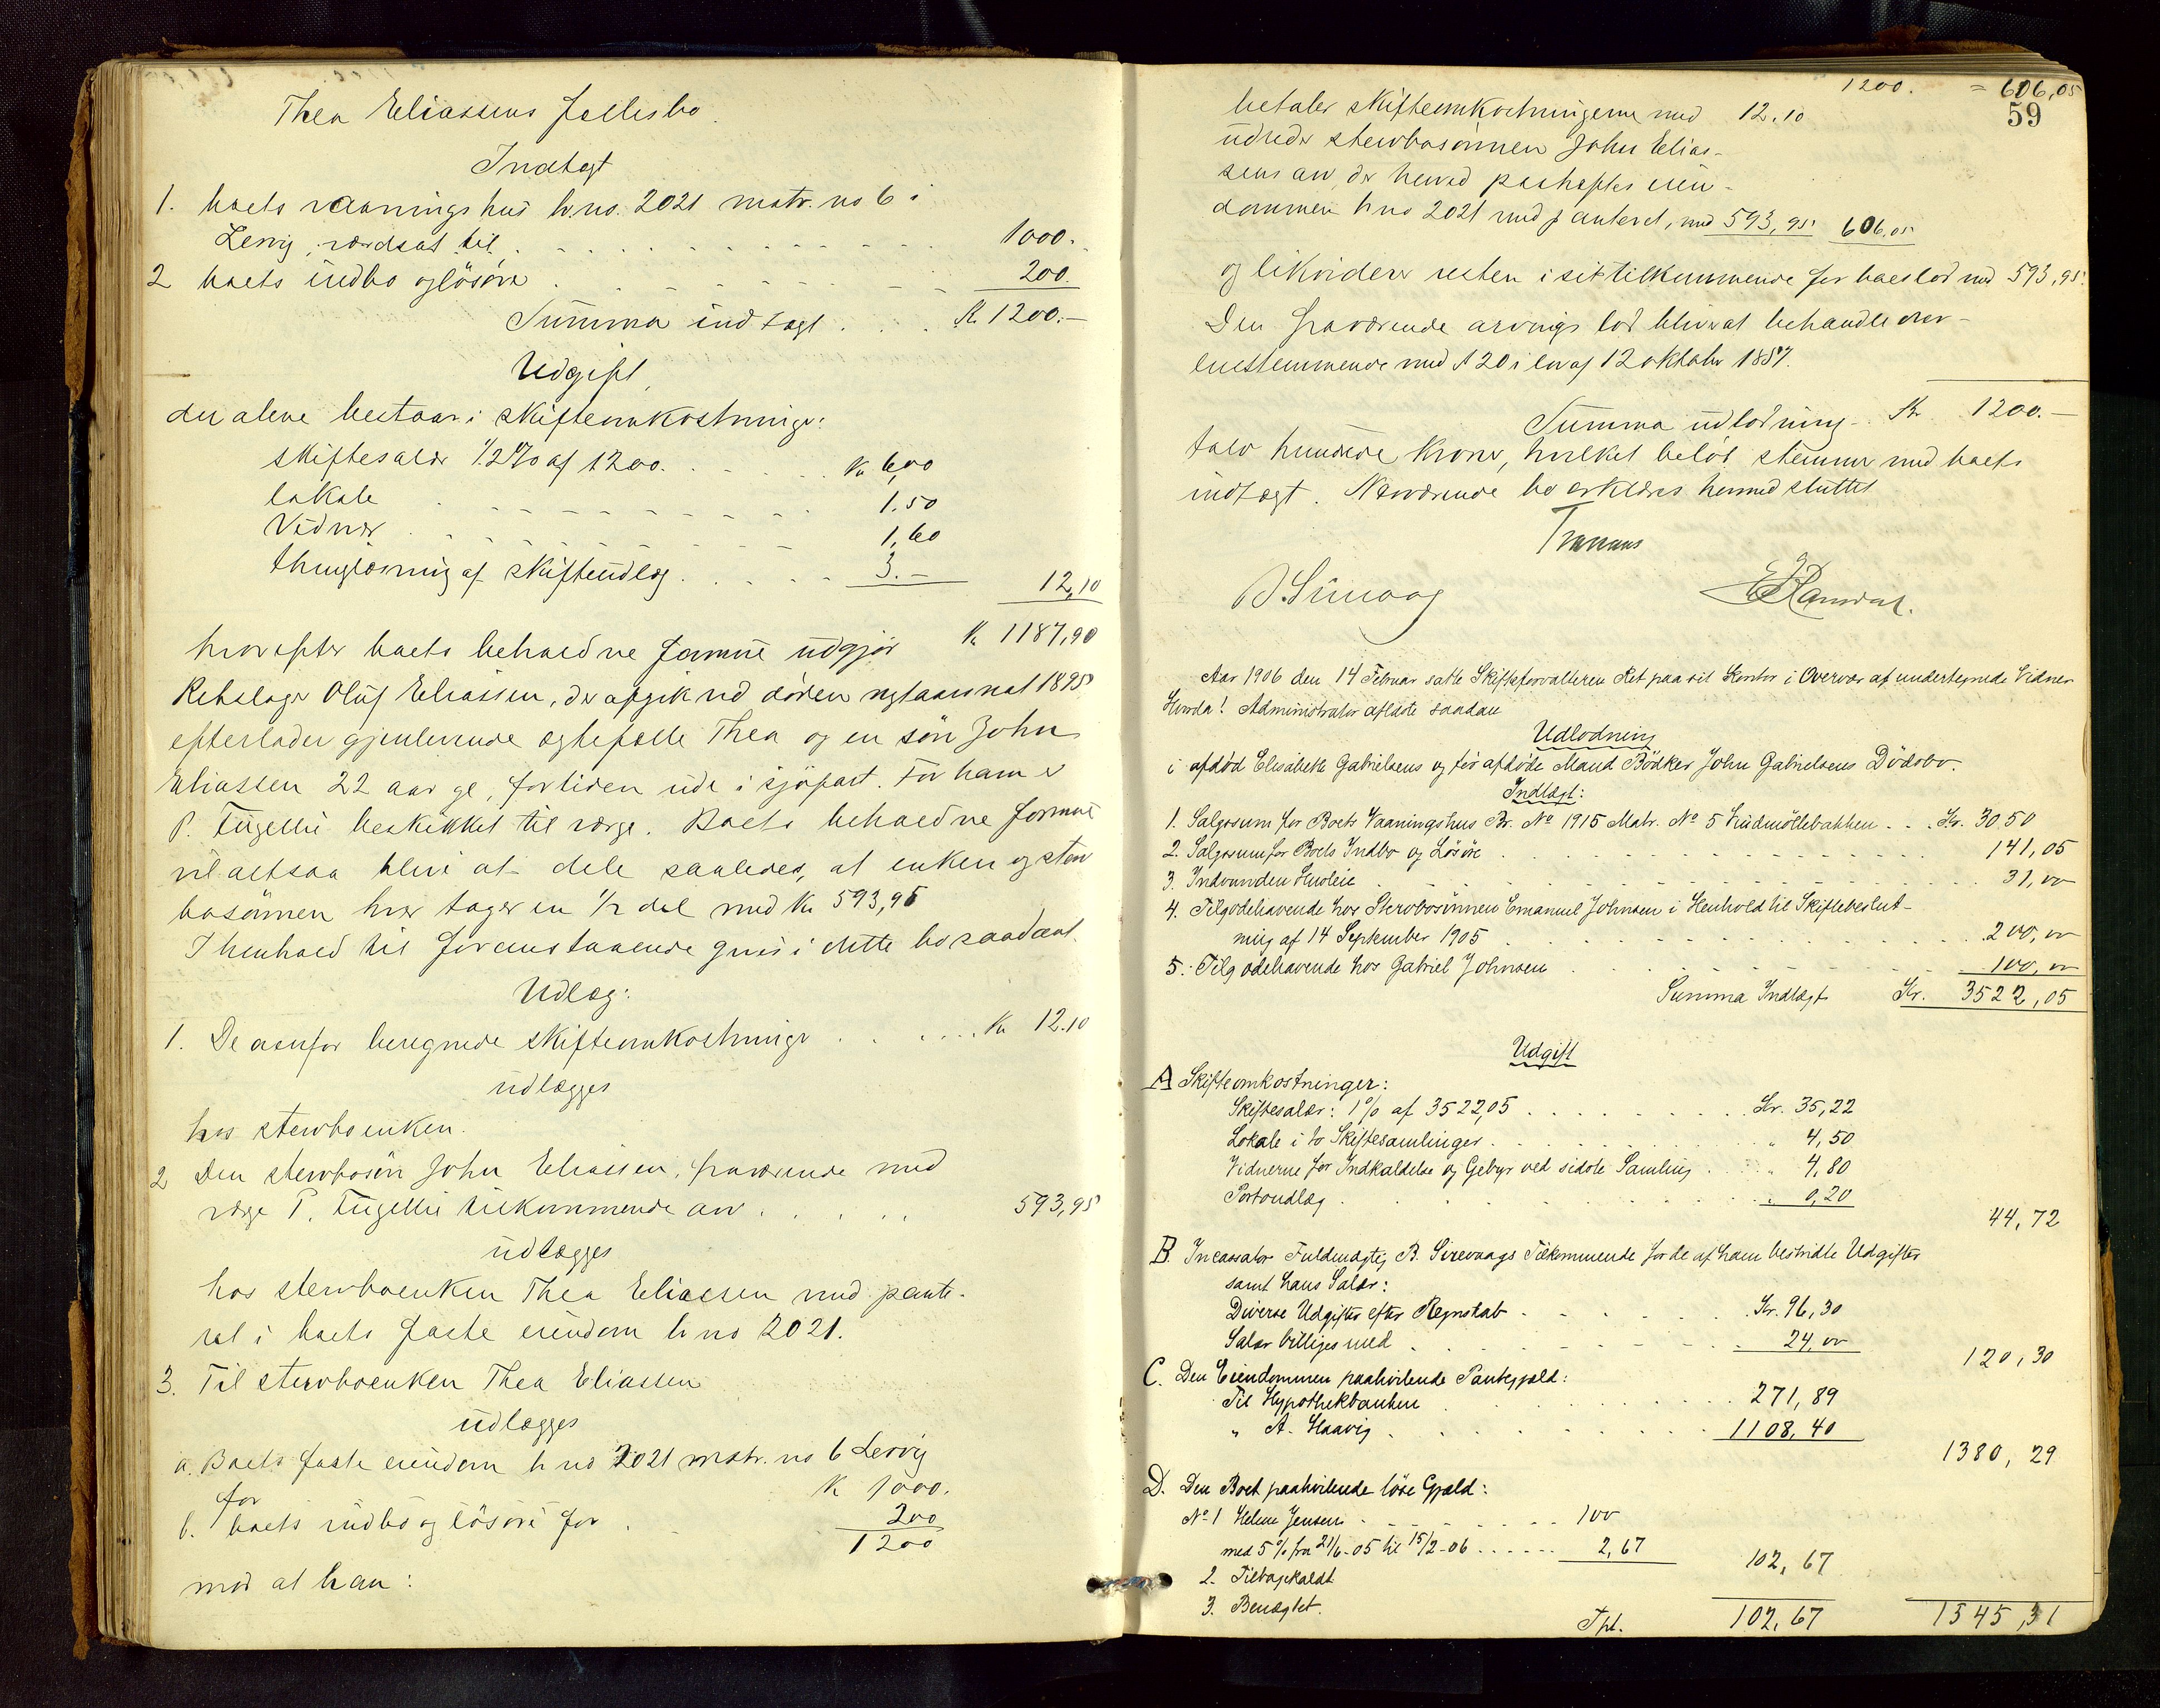 Thea Eliassens fællesbo.
Indtægt
1. boets vaaningshus br.no. 2021 matr. no 6 i
Lervig, værdsat til 1000.
2 boets indbo og løsøre 200.
Summa indtægt Kr 1200.-
Udgift
der alene bestaar i skifteomkostninger:
skiftesalær 1/2 % af 1200. Kr 6,00
lokale 1.50
Vidner 1,60
thinglæsning af skifteudlæg. 3.- 12,10
hvorefter boets beholdne formue udgjør Kr 1187,90
Rebslager Oluf Eliassen, der afgik ved døden nytaarsnat 1895
efterlader gjenlevende ægtefælle Thea og en søn John
Eliassen 22 aar gl, for tiden ude i sjøfart. For ham er
P. Tügellie beskikket til værge. Boets beholdne formue
vil altsaa blive at dele saaledes, at enken og sterv
bosønnen hver tager en 1/2 del med Kr 593,95
I henhold til foranstaaende gives i dette bo saadant
Udlæg:
1. De ovenfor beregnede skifteomkostninger Kr 12.10
udlægges
hos stervboenken.
2 Den stervbosøn John Eliassen, fraværende med
værge P. Tügellie tilkommende arv 593,95
udlægges
hos stervboenken Thea Eliassen med pante-
ret i boets faste eiendom br no 2021.
3. Til stervboenken Thea Eliassen
udlægges
a. Boets faste eiendom br no 2021 matr. no 6 Lervig
for K 1000.
b. boets indbo og løsøre for 200
1200
mod at han:
1200. = 606,05
59
betaler skifteomkostningerne med 12.10
udreder stervbosønnen John Elias-
sens arv, der herved paaheftes eien-
dommen br no 2021 med panteret, med 593,95 606.05
og likviderer resten i sit tilkommende for boeslod med 593,95.
Den fraværende arvings lod bliver at behandle over-
ensstemmende med § 20 i lov af 12 oktober 1857.
Summa udlodning Kr 1200.-
tolv hundrede Kroner, hvilket beløb stemmer med boets
indtægt. Nærværende bo erklæres hermed sluttet
B. Sirevaag
Aar 1906 den 14 Februar satte Skifteforvalteren Ret paa sit Kontor i Overvær af undertegnede Vidner
Hvorda! Administrator afsluttede saadan
Udlodning
i afdød Elisabeth Gabrielsens og før afdøde Mand Bødker John Gabrielsens Dødsbo.
Indtægt:
1. Salgssum for Boets Vaaningshus Br. No 1915 Matr. No 5 Krudmøllebakken Kr. 30 50
2. Salgssum for Boets Indbo og Løsøre 141,05
3. Indvunden Husleie 31,00
4. Tilgodehavende hos Stervbosønnen Emanuel Johnsen i Henhold til Skiftebeslut-
ning af 14 September 1905 200,00
5. Tilgodehavende hos Gabriel Johnsen 100,00
Summa Indtægt Kr. 3522,05
Udgift
A Skifteomkostninger:
Skiftesalær: 1% af 3522,05 Kr. 35,22
Lokale i to Skiftesamlinger " 4,50
Vidnerne for Indkaldelse og Gebyr ved sidste Samling " 4,80
Portoudlæg " 0,20
44,72
B. Incassator Fuldmægtig B. Sirevaags Tilkommende for de af ham bestridte Udgifter
samt hans Salær:
Diverse Udgifter efter Regnskab Kr. 96,30
Salær billiges med 24,00
120,30
C. Den Eiendommen paahvilende Pantegjæld:
Til Hypothekbanken 271,89
" A. Haavig 1108,40
1380,29
D. Den Boet paahvilende løse Gjæld:
No 1 Helene Jensen 100
med 5% fra 21/6-05 til 15/2-06 2,67 102,67
2. Tilbagekaldt
3. Benægtet.
Tpt. 102,67 1545,31